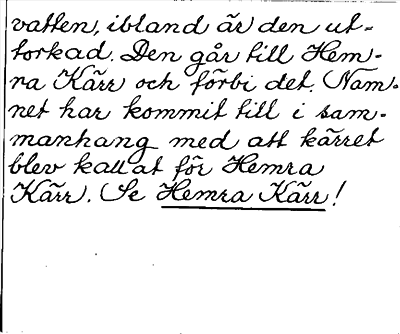 vatten, ibland är den ut-
torkad. Den går till Hem-
ra Kärr och förbi det. Nam-
net har kommit till i sam-
manhang med att kärret
blev kallat för Hemra
Kärr. Se Hemra Kärr!